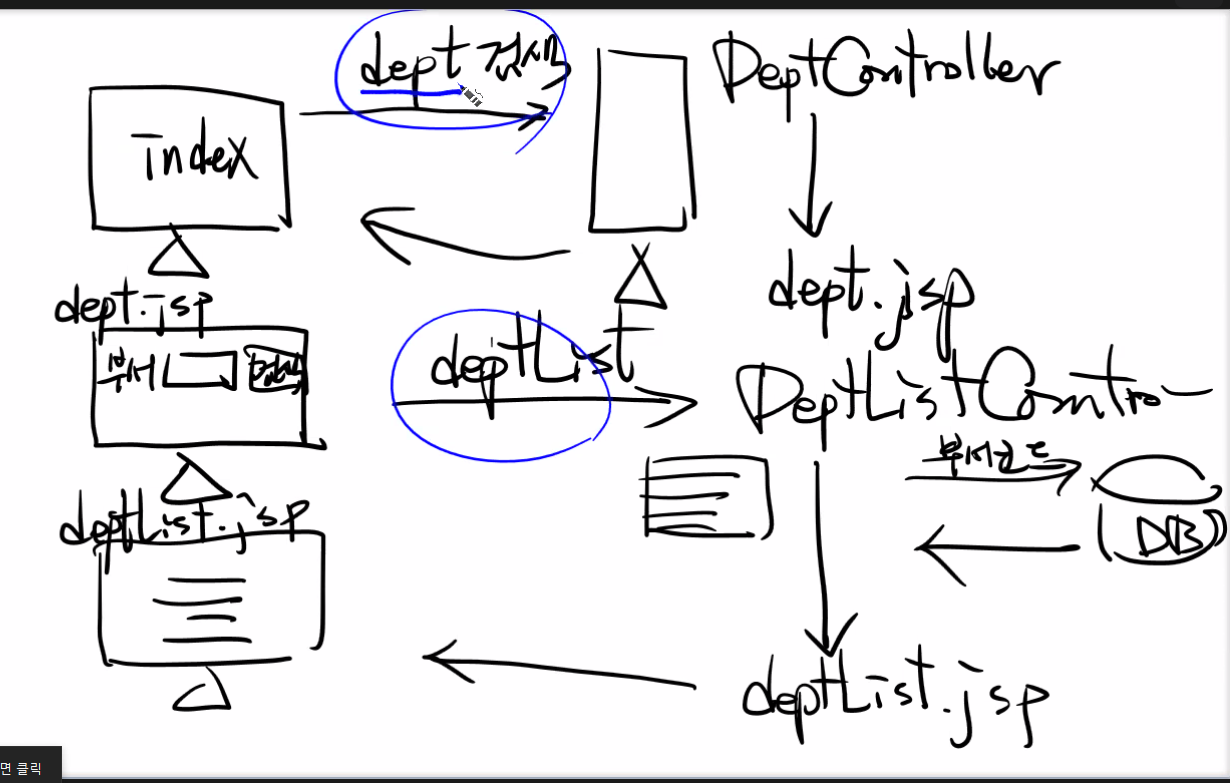 dept 검색
DeptController
index
dept.jsp
dept.jsp
부서 검색
deptList
DeptListContro
부서코드
DB
deptList.jsp
deptList.jsp
면 클릭